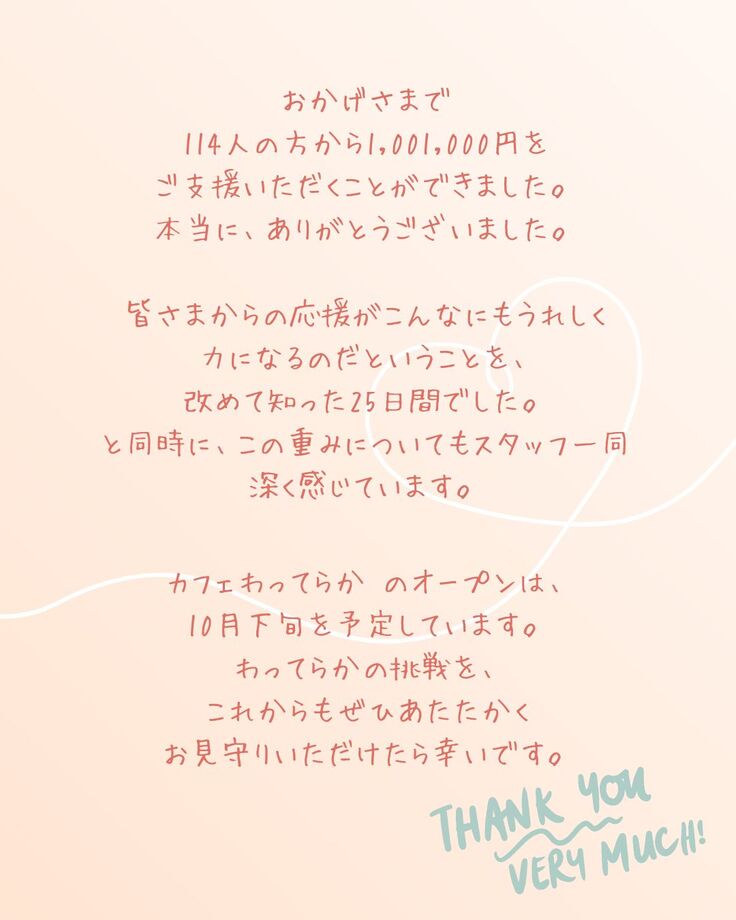 おかげさまで
114人の方から1,001,000円を
ご支援いただくことができました。
本当に、ありがとうございました。
皆さまからの応援がこんなにもうれしく
力になるのだということを、
改めて知った25日間でした。
と同時に、この重みについてもスタッフ一同
深く感じています。
カフェわってらか のオープンは、
10月下旬を予定しています。
わってらかの挑戦を、
これからもぜひあたたかく
お見守りいただけたら幸いです。
THANK YOU
VERY MUCH!